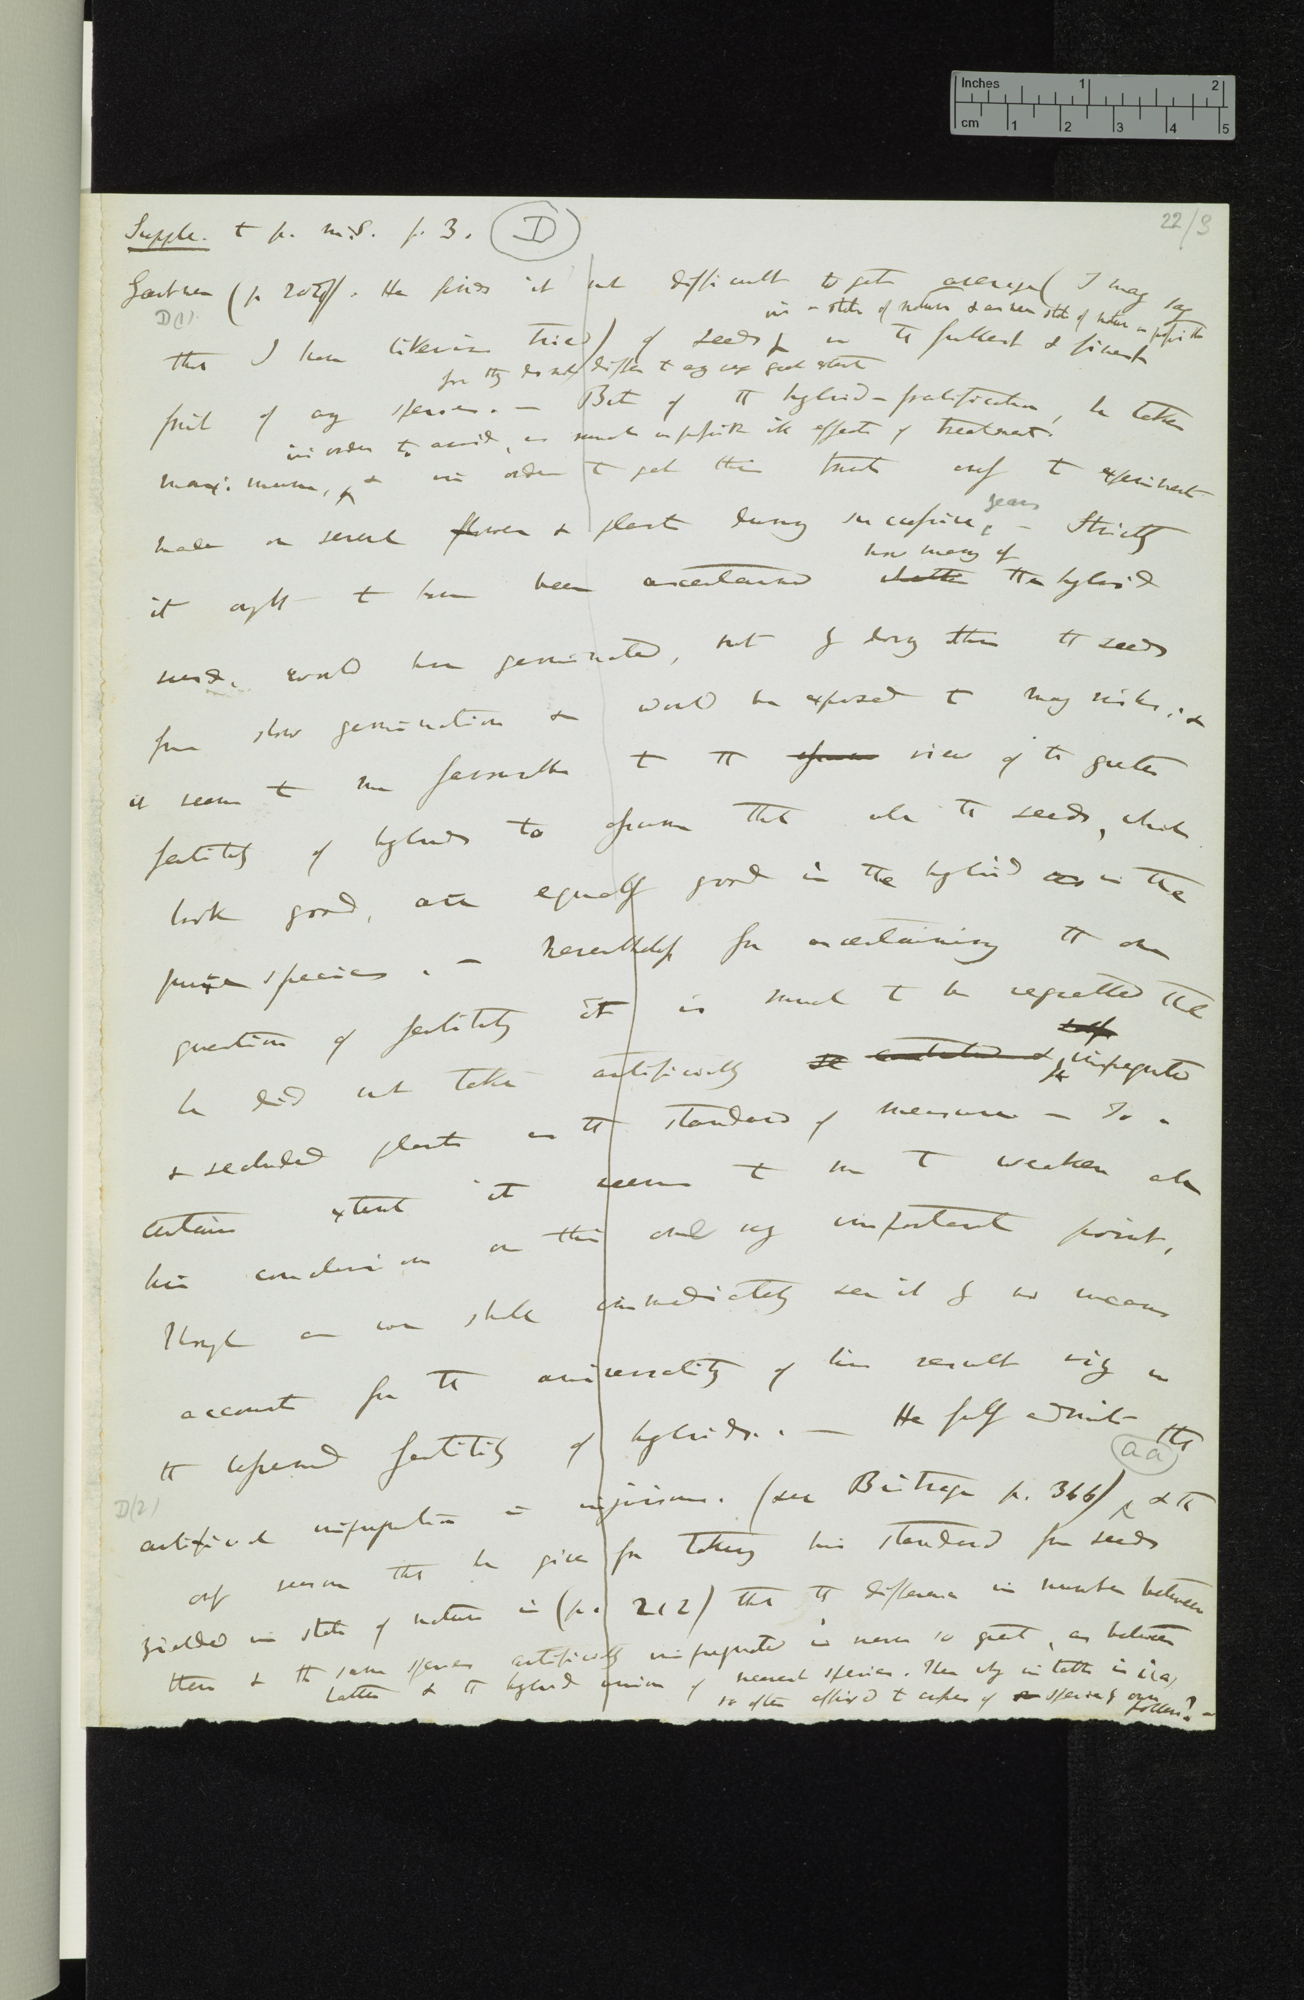 Inches 1 2
cm 1 2 3 4 5
22/3
Supple. to p. m.S. p. 3. D
Gartner (p 207). He finds it not difficult to get averages ( I may say
D(1)
in a state of nature & as near state of nature as possible
that I have likewise tried) of seeds, in the fullest & finest
for they do not differ to any very great extent
fruit of any species. — But of the hybrid-fratification, he takes
in order to avoid, as much as possible ill effects of treatment.
maximum, & in order to get this trusts only to experiment
made on several flowers & plants during successive years — Strictly
how many of
it ought to have been ascertained whether the hybrid
seeds, would have germinated, but by doing this the seeds
from slow germination & would be exposed to many risks, &
it seems to me favourable to the view of the greater
fertility of hybrids to assume that all the seeds, which
look good, are equally good in the hybrid as in the
pure species. — Nevertheless for ascertaining the one
question of fertility it is much to be regretted that
he did not take artificially impregnated
& secluded plants as the standard of measure — To a
certain extent it seems to me to weaken all
his conclusions on this one very important point,
though as we shall immediately see it by no means
accounts for the universality of his result viz in
the lessened fertility of hybrids. — He fully admits that
aa
D(2)
artificial impregnation is injurious. (see Beitrage p. 366) & the
only reason that he gives for taking his standard from seeds
yielded in state of nature is (p. 212) that the difference in number between
them & the same species artificially impregnated is never so great, as between
latter & the hybrid union of nearest species. Then why in table is
so often affixed to cases of species & own pollen? —